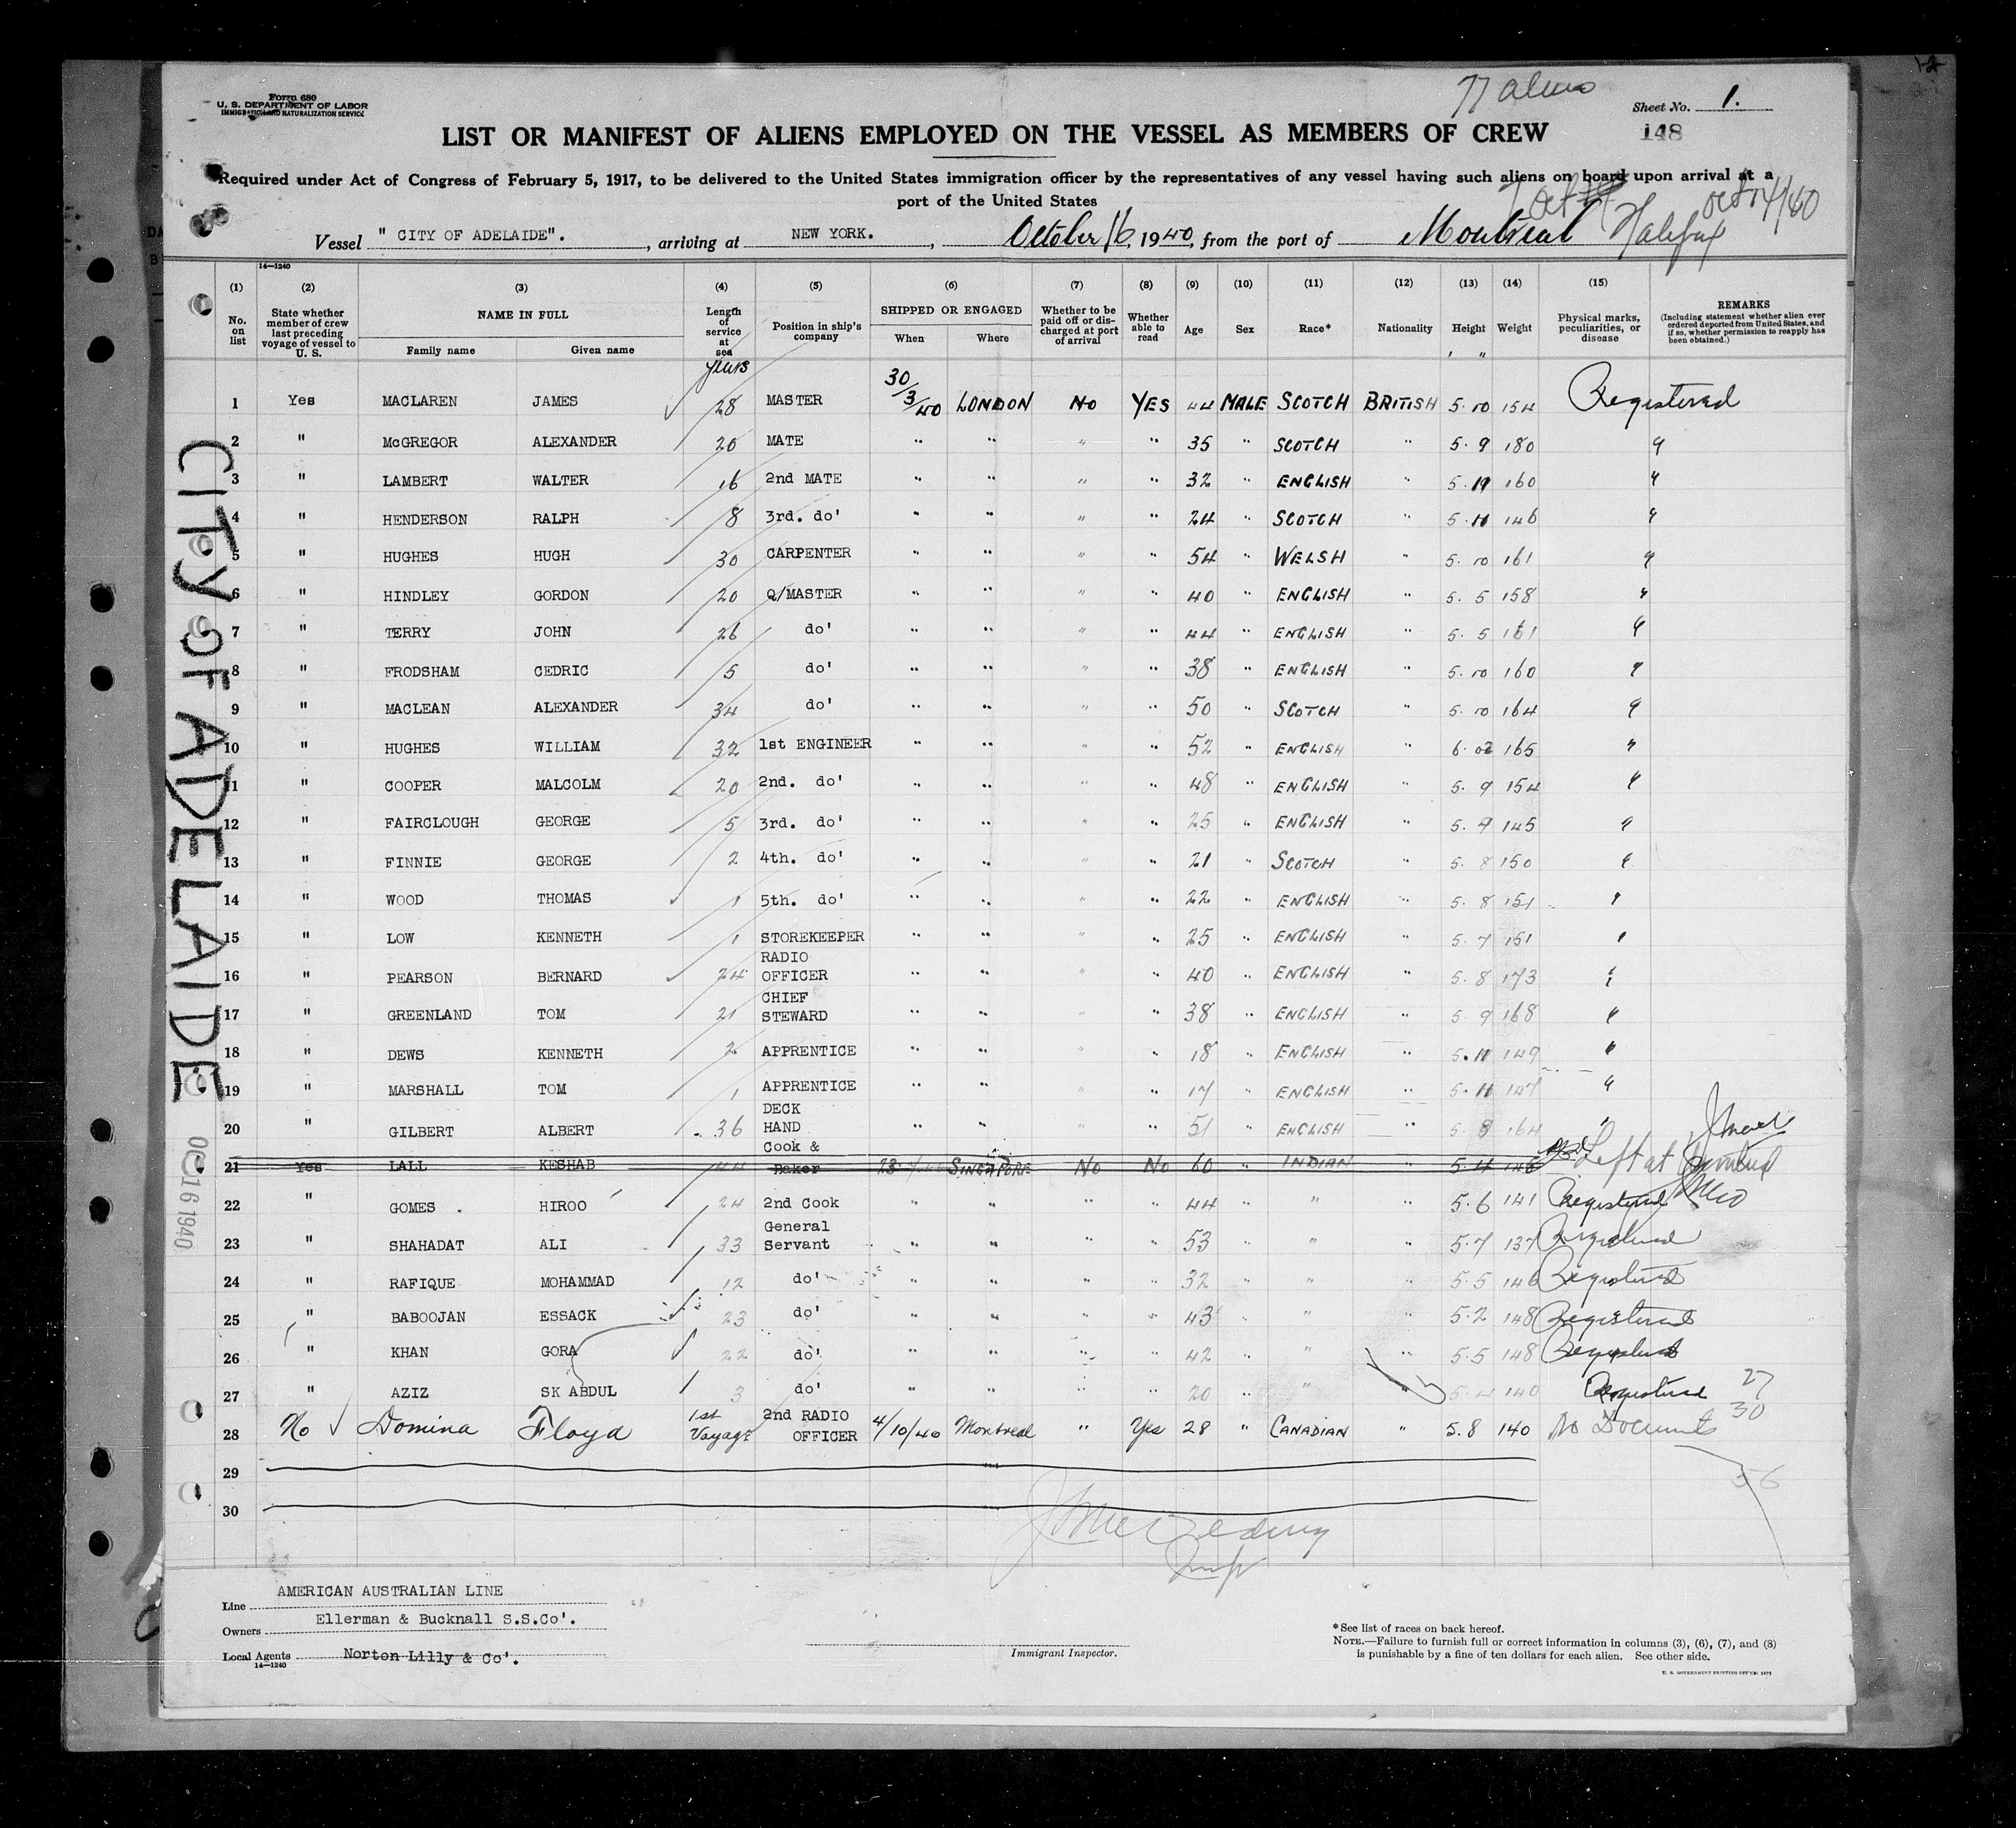 Form 680
U. S. DEPARTMENT OF LABOR
IMMIGRATION AND NATURALIZATION SERVICE
77 aliens
Sheet No. 1.
148
LIST OR MANIFEST OF ALIENS EMPLOYED ON THE VESSEL AS MEMBERS OF CREW
Required under Act of Congress of February 5, 1917, to be delivered to the United States immigration officer by the representatives of any vessel having such aliens on board upon arrival at a
port of the United States
Vessel " CITY OF ADELAIDE". , arriving at NEW YORK. , October 16, 1940, from the port of Montreal Halifax Oct 14/40
14—1240
(1) (2) (3) (4) (5) (6) (7) (8) (9) (10) (11) (12) (13) (14) (15)
No. on list
State whether member of crew last preceding voyage of vessel to U. S.
NAME IN FULL
Family name Given name
Length of service at sea
years
Position in ship's company
SHIPPED OR ENGAGED
When Where
Whether to be paid off or discharged at port of arrival
Whether able to read
Age Sex Race* Nationality Height Weight
Physical marks, peculiarities, or disease
REMARKS
(Including statement whether alien ever ordered deported from United States, and if so, whether permission to reapply has been obtained.)
1 Yes MACLAREN JAMES 28 MASTER 30/3/40 LONDON NO YES 44 MALE SCOTCH BRITISH 5.10 154 Registered
2 " McGREGOR ALEXANDER 20 MATE " " " " 35 " SCOTCH " 5.9 180 "
3 " LAMBERT WALTER 16 2nd MATE " " " " 32 " ENGLISH " 5.11 160 "
4 " HENDERSON RALPH 8 3rd. do' " " " " 24 " SCOTCH " 5.11 146 "
5 " HUGHES HUGH 30 CARPENTER " " " " 54 " WELSH " 5.10 161 "
6 " HINDLEY GORDON 20 Q/MASTER " " " " 40 " ENGLISH " 5.5 158 "
7 " TERRY JOHN 26 do' " " " " 44 " ENGLISH " 5.5 161 "
8 " FRODSHAM CEDRIC 5 do' " " " " 38 " ENGLISH " 5.10 160 "
9 " MACLEAN ALEXANDER 34 do' " " " " 50 " SCOTCH " 5.10 164 "
10 " HUGHES WILLIAM 32 1st ENGINEER " " " " 52 " ENGLISH " 6.02 165 "
11 " COOPER MALCOLM 20 2nd. do' " " " " 48 " ENGLISH " 5.9 154 "
12 " FAIRCLOUGH GEORGE 5 3rd. do' " " " " 25 " ENGLISH " 5.9 145 "
13 " FINNIE GEORGE 2 4th. do' " " " " 21 " SCOTCH 5.8 150 "
14 " WOOD THOMAS 1 5th. do' " " " " 22 " ENGLISH " 5.8 151 "
15 " LOW KENNETH 1 STOREKEEPER " " " " 25 " ENGLISH " 5.7 151 "
16 " PEARSON BERNARD 24 RADIO OFFICER " " " " 40 " ENGLISH " 5.8 173 "
17 " GREENLAND TOM 21 CHIEF STEWARD " " " " 38 " ENGLISH " 5.9 168 "
18 " DEWS KENNETH 2 APPRENTICE " " " " 18 " ENGLISH " 5.11 149 "
19 " MARSHALL TOM 1 APPRENTICE " " " " 17 " ENGLISH " 5.11 147 "
20 " GILBERT ALBERT 36 DECK HAND " " " " 51 " ENGLISH " 5.8 164 "
21 Yes LALL KESHAB 44 Cook & Baker SINGAPORE No No 60 " INDIAN " 5.4 146 Left at Montreal
22 " GOMES . HIROO 24 2nd Cook " " " " 44 " " " 5.6 141 Registered
23 " SHAHADAT ALI 33 General Servant " " " " 53 " " " 5.7 137 Registered
24 " RAFIQUE MOHAMMAD 12 do' " " " " 32 " " " 5.5 146 Registered
25 " BABOOJAN ESSACK 23 do' " " " " 43 " " " 5.2 148 Registered
26 " KHAN GORA 22 do' " " " " 42 " " " 5.5 148 Registered
27 " AZIZ SK ABDUL 3 do' " " " " 20 " " " 5.4 140 Registered 27
28 No Domina Floyd 1st Voyage 2nd RADIO OFFICER 4/10/40 Montreal " Yes 28 " CANADIAN " 5.8 140 No Documents 30
29
56
30
CITY OF ADELAIDE
OC 16 1940
Line AMERICAN AUSTRALIAN LINE
Owners Ellerman & Bucknall S.S.Co'.
Local Agents Norton Lilly & Co'.
14—1240
Immigrant Inspector.
*See list of races on back hereof.
NOTE.—Failure to furnish full or correct information in columns (3), (6), (7), and (8)
is punishable by a fine of ten dollars for each alien. See other side.
U. S. GOVERNMENT PRINTING OFFICE